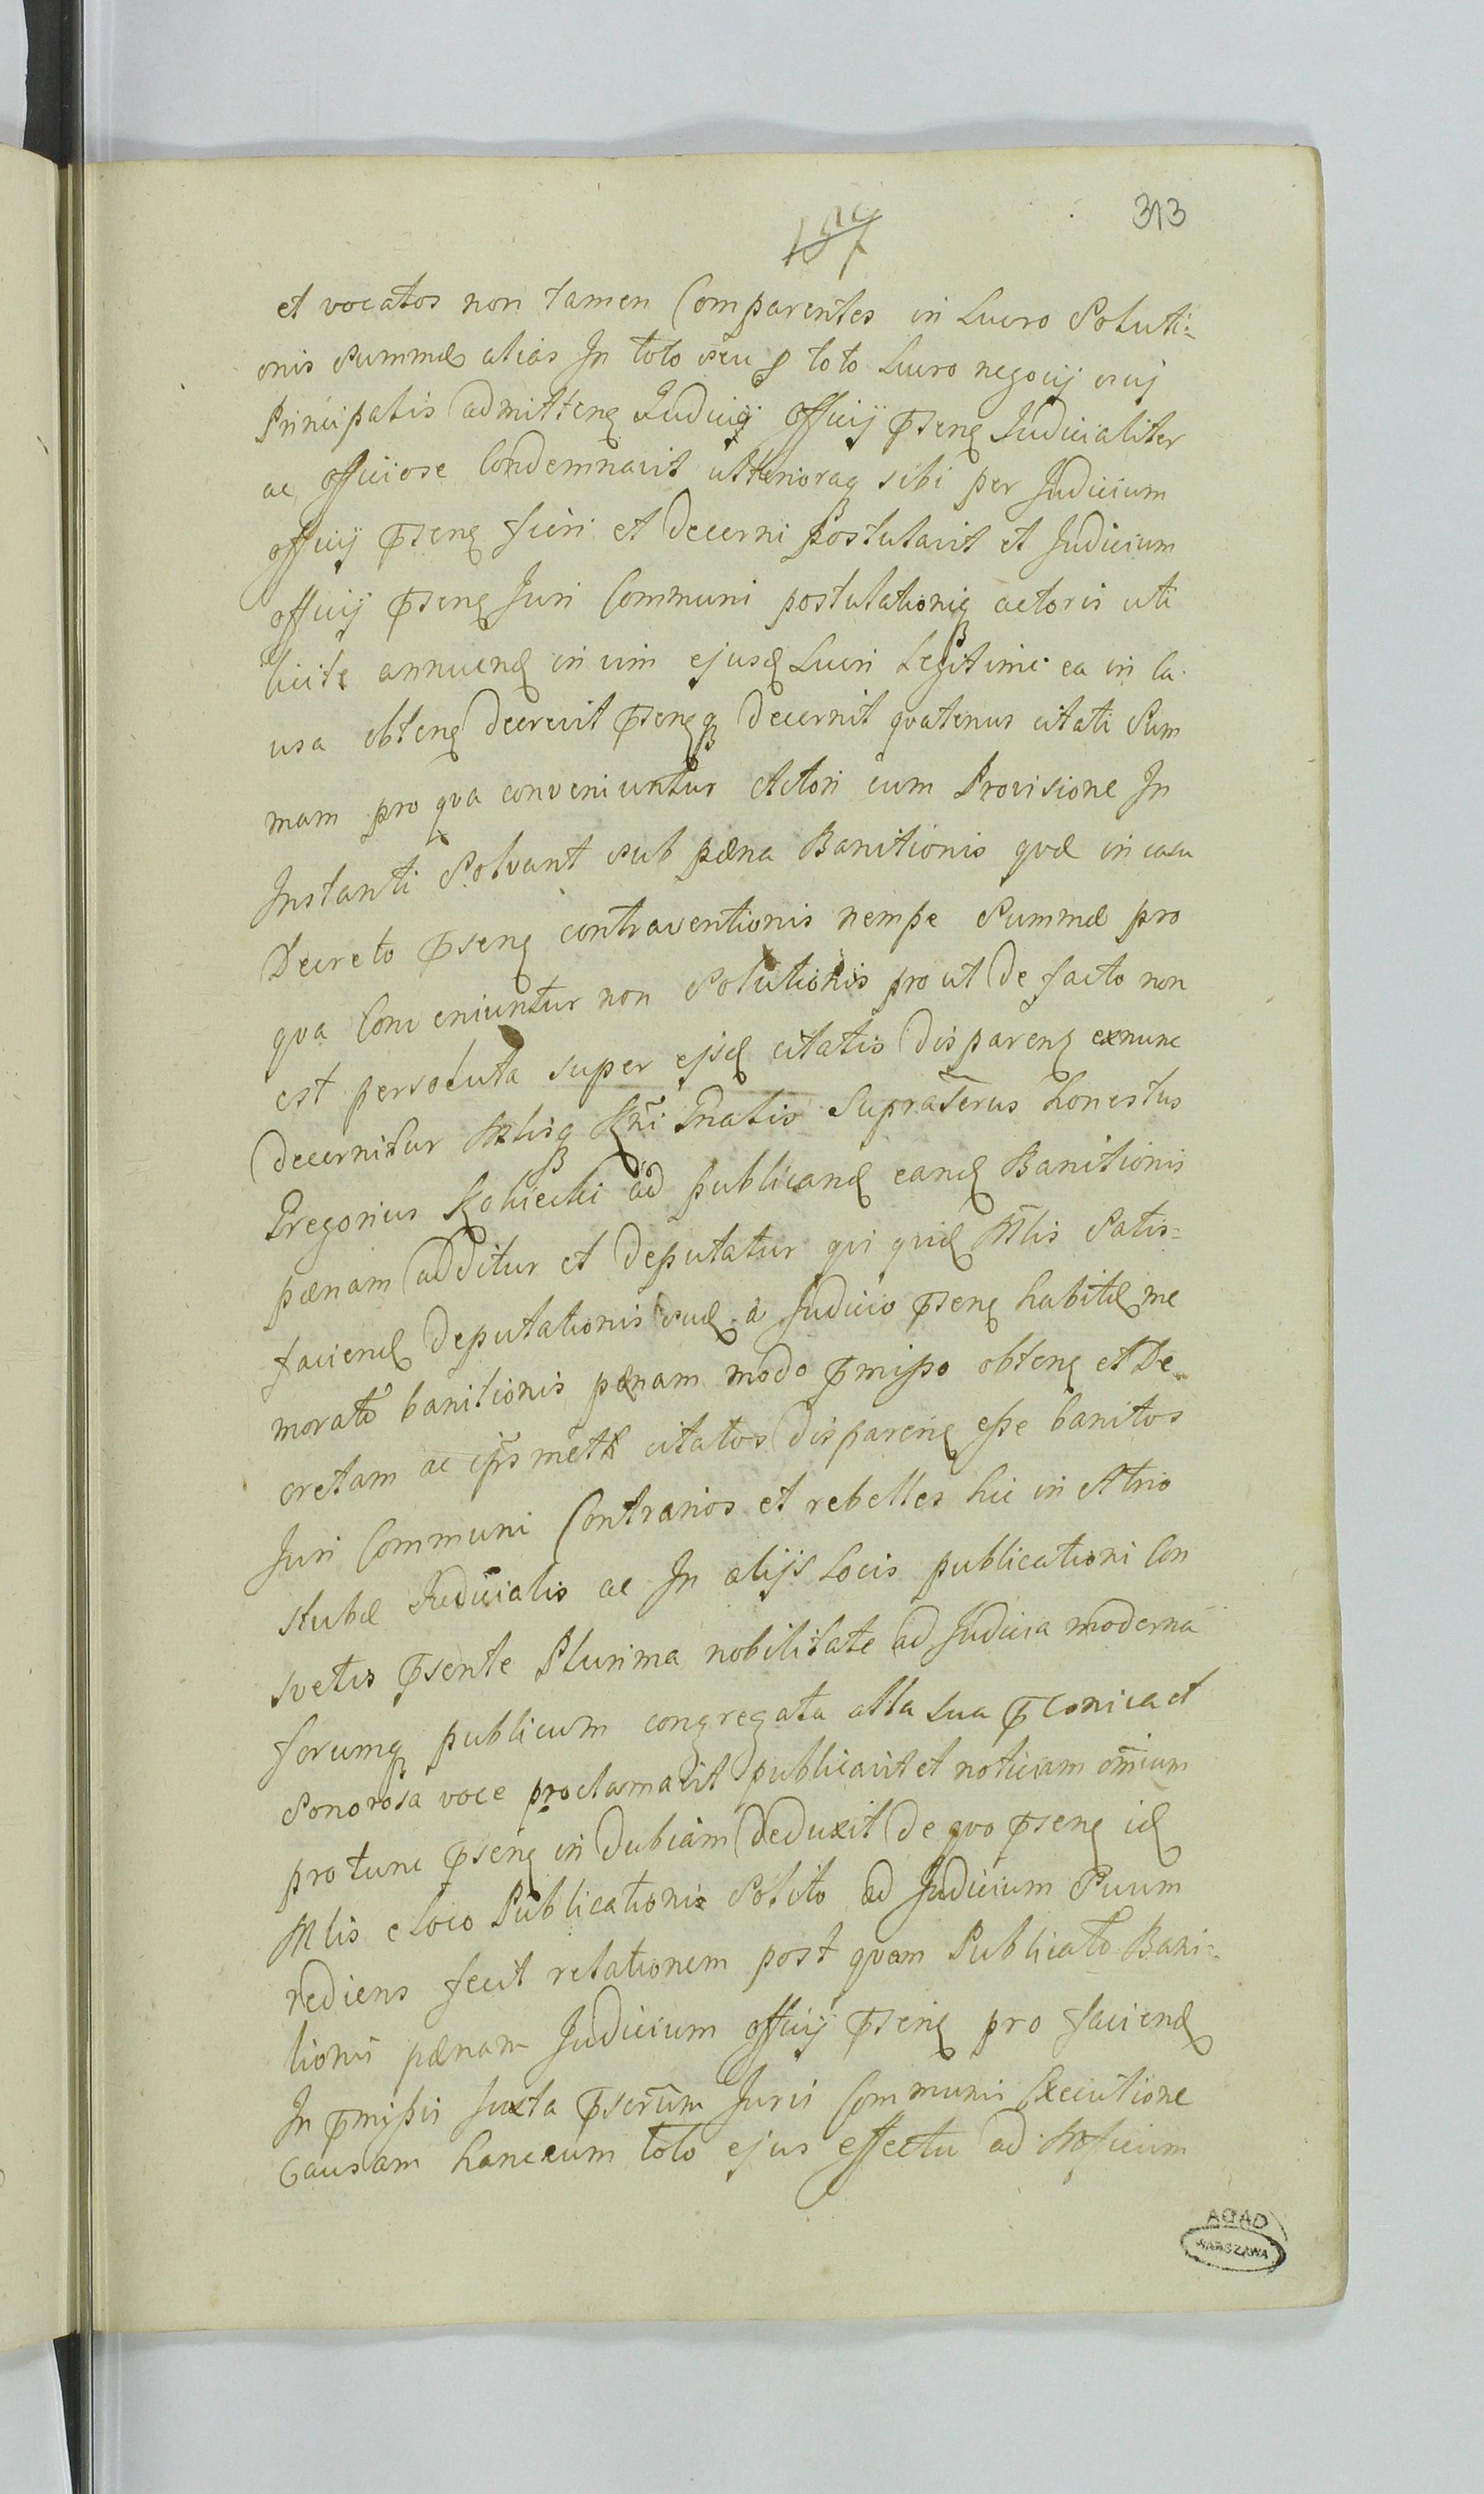 313
157
et vocatos non tamen Comparentes in Lucro Soluti=
onis Summæ alias In toto seu p toto Lucro negocij sui
Principalis admitten Judicij Officij psen Judicialiter
ac officiose Condemnavit ulterioraq sibi per Judicium
officij psen fieri et decerni postulavit et Judicium
officij psen Juri Communi postulationiq actoris uti
licite annuend in vim ejusd Lucri Legitime ea in ca
usa obten decrevit psenq decernit qvatenus citati Sum
mam pro qva conveniuntur Actori cum Provisione In
Instanti Solvant sub pæna Banitionis qvæ in casu
Decreto psen contraventionis nempe Summæ pro
qva Conveniuntur non Solutionis pro ut de facto non
est persoluta super ejsd citatis disparen exnunc
decernitur Mlisq Rni Gnalis Supraserus honestus
Gregorius ad publicand eand Banitionis
pænam additur et deputatur qvi qvid Mlis Satis=
faciend deputationis suæ à Judicio psen habitæ me
morato banitionis pænam modo pmisso obten et De
cretam ac ipsmet citatos disparen esse banitos
Juri Communi Contrarios et rebelles hic in Atrio
stubæ Judicialis ac In alijs Locis publicationi Con
svetis psente Plurima nobilitate ad Judicia moderna
forumq publicum congregata alta sua pconica et
Sonorosa voce proclamavit publicavit et noticiam omium
pro tunc psen in dubiam deduxit de qvo psen id
Mlis e loco Publicationis Solito ad Judicium Suum
rediens fecit relationem post qvam Publicato Bani=
tionis pænam Judicium officij psen pro faciend
In pmissis Juxta pscrum Juris Communis Executione
Causam hanc cum toto ejus effectu ad Officium
AGAD
WARSZAWA